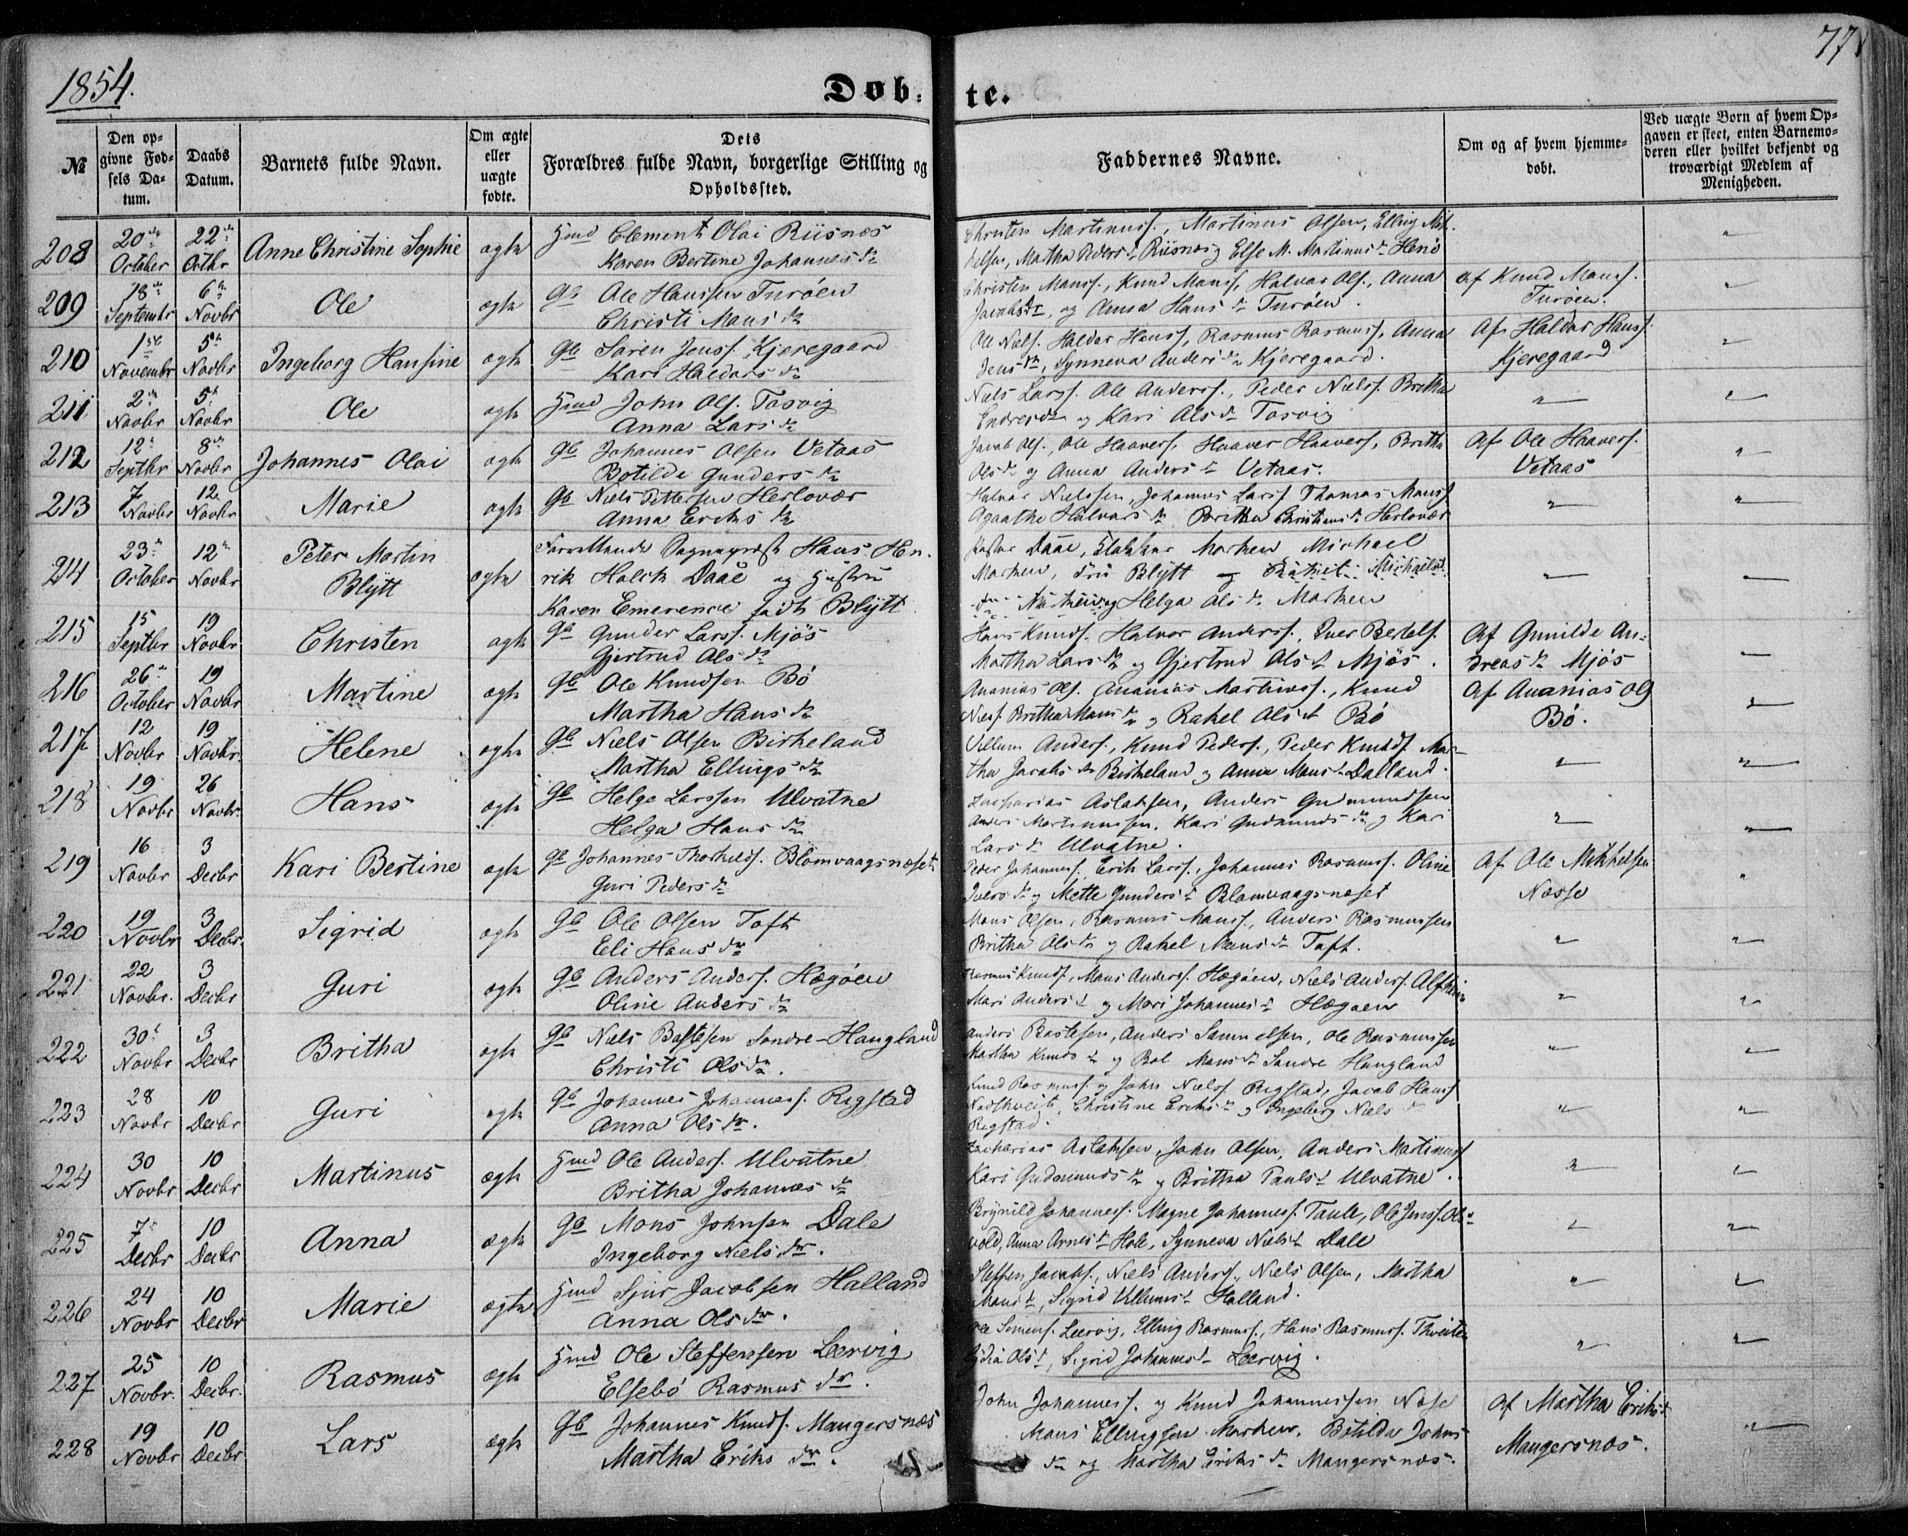 1854.
77
Døb-
te.
№
Den op-
givne Fød-
sels Da-
tum.
Daabs
Datum.
Barnets fulde Navn.
Om ægte
eller
uægte
fødte.
Dets
Forældres fulde Navn, borgerlige Stilling og
Opholdssted.
Faddernes Navne.
Om og af hvem hjemme-
døbt.
Ved uægte Børn af hvem Op-
gaven er skeet, enten Barnemo-
deren eller hvilket bekjendt og
troværdigt Medlem af
Menigheden.
208 20de October 22de Octbr Anne Christine Sophie ægte Hmd Clement Olai Riisnæs
Karen Bertine Johannes dr
Christen Martinuss., Martinus Olsen, Elling Mik-
kelsen, Martha Peders dr Riisnæs og Else M. Martinus dr Henö
209 18de Septembr 6te Novbr Ole ægte Gb Ole Hanssen Turöen
Christi Mons dr
Christen Monss., Knud Monss., Halvor Ols., Anna
Jacobs dr, og Anna Hans dr Turöen.
af Knud Monss.
Turöen.
210 1ste Novembr 5te Novbr Ingeborg Hansine ægte Gb Sören Jenss. Kjeregaard
Kari Haldors dr
Ole Niels. Haldor Hanss., Rasmus Rasmuss., Anna
Jens dr, Synneva Anders dr Kjeregaard.
Af Haldor Hanss.
Kjeregaard
211 2de Novbr 5te Novbr Ole ægte Hmd John Ols. Tosvig
Anna Lars dr
Niels Larss. Ole Anderss., Peder Nielss. Britha
Endres dr og Kari Ols dr Tosvig
212 12te Septbr 8de Novbr Johannes Olai ægte Gb Johannes Olsen Vetaas
Botilde Gunders dr
Jacob Ols., Ole Haavers., Haaver Haavers., Britha
Ols dr og Anna Anders dr Vetaas.
Af Ole Haavers.
Vetaas
213 7 Novbr 12te Novbr Marie ægte Gb Niels Pettersen Herlovær
Anna Eriks dr
Halvor Nielssen, Johannes Larss. Thomas Monss.
Agaathe Halvors dr Britha Christens dr Herlovær
214 23de October 12te Novbr Peter Martin
Blÿtt
ægte Sognepræst Hans Hen-
rik Holck Daae og Hustru
Karen Emerence födt Blÿtt.
Pastor Daae, Klokker Marken Michael
Marken, Fru Blÿtt og
og Helga Ols dr Marken
215 15 Septbr 19 Novbr Christen ægte Gb Gunder Larss. Mjös
Gjertrud Ols dr
Hans Knuds. Halvor Anderss., Iver Bertels.
Martha Lars dr og Gjertrud Ols dr Mjös.
Af Gunilde An-
dreas dr Mjös
216 26de October 19 Novbr Martine ægte Gb Ole Knudsen Bö
Martha Hans dr
Ananias Ols. Ananias Martinuss., Knud
Nielss. Britha Hans dr og Rakel Ols dr Bö
Af Ananias Ols
Bö.
217 12 Novbr 19 Novbr. Helene ægte Gb Niels Olsen Birkeland
Martha Ellings dr
Villum Anders., Knud Peders., Peder Knuds. Mar-
tha Jacobs dr Birkeland og Anna Mons dr Dalland.
218 19 Novbr 26 Novbr. Hans ægte Gb Helge Larssen Ulvatne
Helga Hans dr
Zacharias Aslaksen, Anders Gudmundsen
Anders Martinussen, Kari Gudmunds dr og Kari
Lars dr Ulvatne.
219 16 Novbr 3 Decbr Kari Bertine ægte Gb Johannes Thorkilds. Blomvaagsnæset
Guri Peders dr
Peder Johanness., Erik Larss., Johannes Rasmuss. Oline
Ivers dr og Mette Gunders dr Blomvaagsnæset
Af Ole Mikkelsen
Næsse
220 19 Novbr 3 Decbr. Sigrid ægte Gb Ole Olsen Toft
Eli Hans dr
Mons Olsen, Rasmus Monss., Anders Rasmussen
Britha Ols dr og Rakel Mons dr Toft.
221 22 Novbr. 3 Decbr Guri ægte Gb Anders Anders. Hægöen
Oline Anders dr
Rasmus Knuds., Mons Anders. Hægöen, Niels Anders. Alfheim
Mari Anders dr og Mari Johannes dr Hægöen
222 30te Novbr 3 Decbr Britha ægte Gb Niels Bastesen Söndre-Haugland
Christi Ols dr.
Anders Bastesen, Anders Samuelsen, Ole Rasmussen
Martha Knuds dr og Rol Mons dr Söndre Haugland
223 28 Novbr 10 Decbr Guri ægte Gb Johannes Johanness. Rigstad
Anna Ols dr.
Knud Rasmuss. og John Nielss. Rigstad, Jacob Hanss.
Christine Eriks dr og Ingeborg Niels dr
Rigstad.
224 30 Novbr 10 Decbr Martinus ægte Hmd Ole Anders. Ulvatne
Britha Johannes dr
Zacharias Aslaksen, John Olsen, Anders Martinuss.
Kari Gudmunds dr og Britha Pauls dr Ulvatne.
225 7de Decbr 10 Decbr Anna ægte Gb Mons Johnsen Dale
Ingeborg Niels dr.
Brÿnild Johanness. Magne Johanness. Taule, Ole Jenss. Ols-
vold, Anna Arnes dr Hole, Synneva Niels dr Dale
226 24 Novbr 10 Decbr Marie ægte Hmd Sjur Jacobsen Halland
Anna Ols dr.
Steffen Jacobs., Niels Anders., Niels Olsen, Martha
Mons dr, Sigrid Villums dr Halland.
227 25 Novbr. 10 Decbr. Rasmus ægte Hmd Ole Steffensen Leervig
Elsebö Rasmus dr.
Ole Simens. Leervig, Elling Rasmuss., Hans Rasmuss. Thveiten
Lydia Ols dr, Sigrid Johannes dr Leervig.
228 19 Novbr 10 Decbr Lars ægte Gb Johannes Knuds. Mangersnæs
Martha Eriks dr.
John Johanness. og Knud Johannessen Nose
Mons Ellingsen Marken, Botilda Johns
dr og Martha Eriks dr Mangersnæs.
af Martha Eriks dr
Mangersnæs.